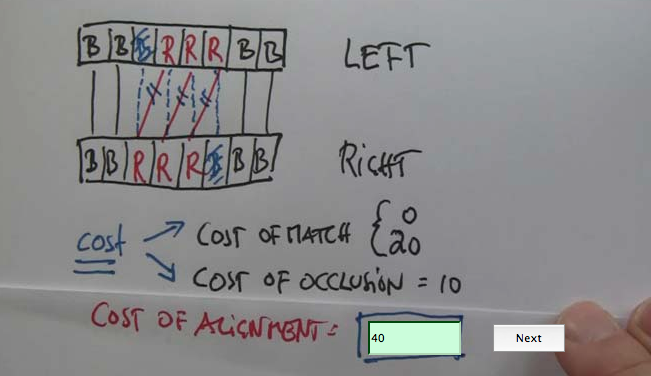 B B B R R R B B
LEFT
B B R R R B B B
RIGHT
COST
COST OF MATCH { 0
20
COST OF OCCLUSION = 10
COST OF ALIGNMENT= 40 Next